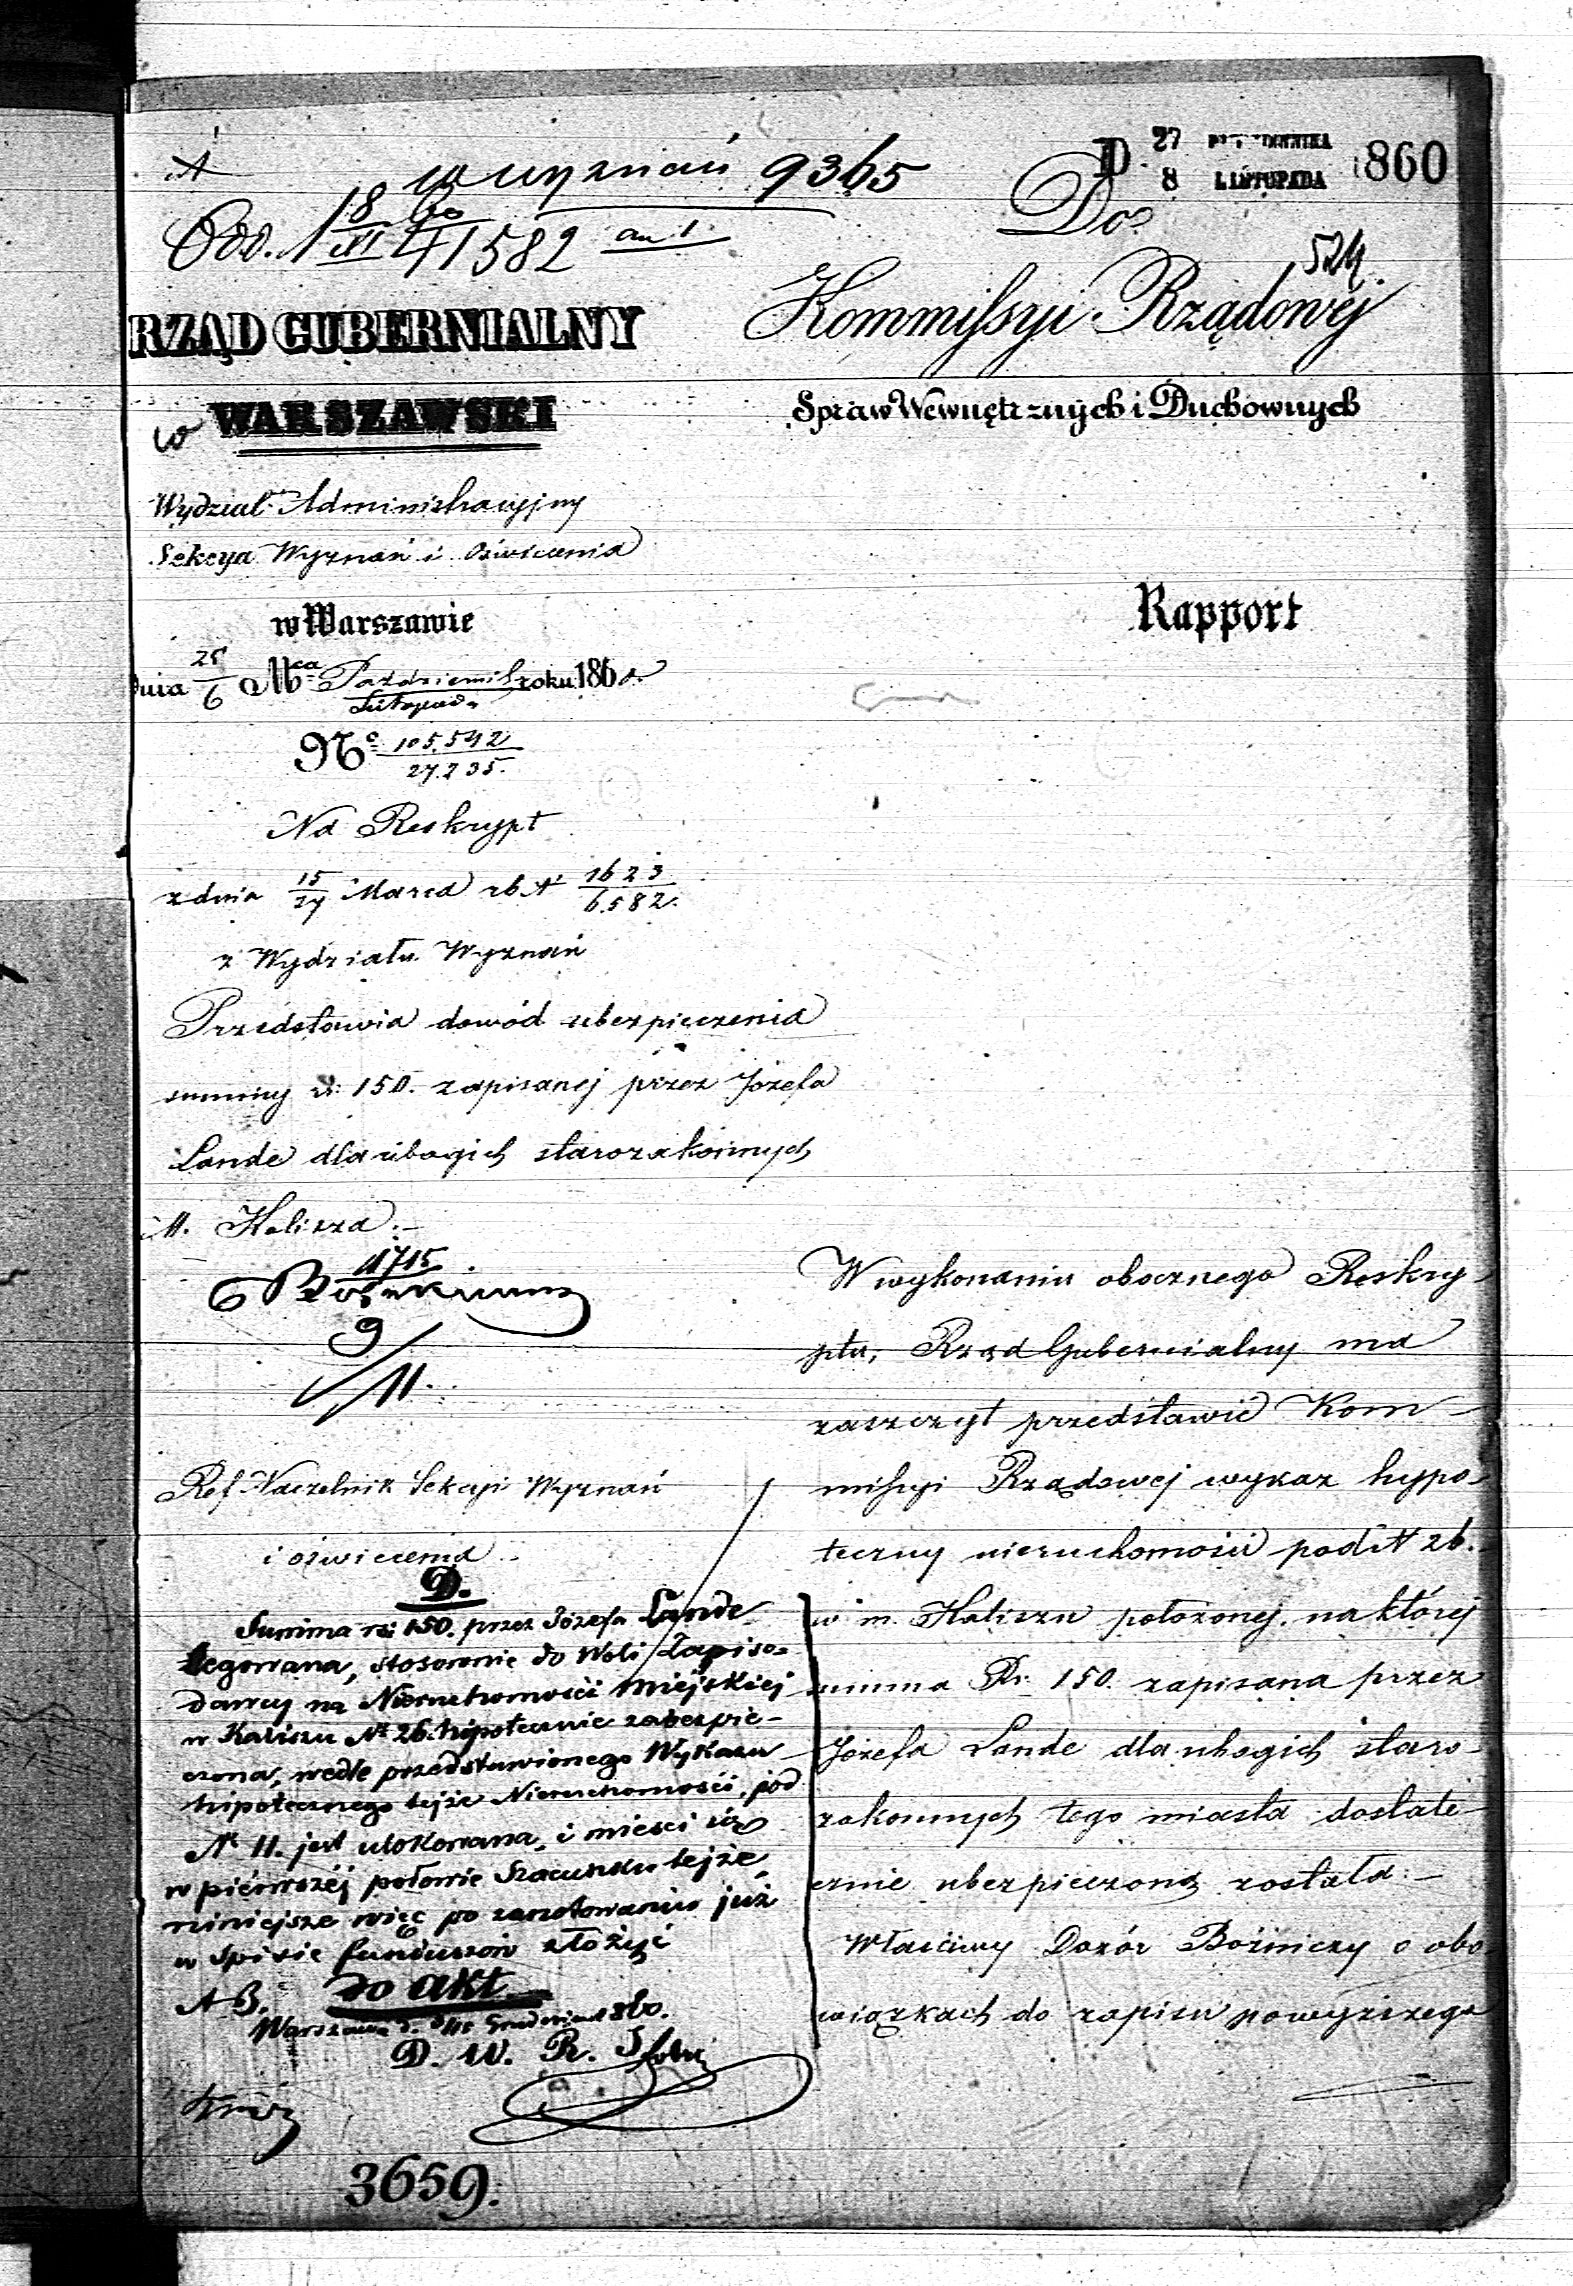 w wyznań 9365
D. 27 PAŹDZIERNIKA
8 LISTOPADA 1860
Odd. 8/XI 60 41582 an 1.
Do
524
Kommissyi Rządowej
RZĄD GUBERNIALNY
WARSZAWSKI
Spraw Wewnętrznych i Duchownych
Wydział Administracyjny
Sekcya Wyznań i Oświecenia
w Warszawie
Rapport
dnia 25/6 Mca Październik/Listopada roku 1860.
No 105.542/27.235.
Na Reskrypt
z dnia 15/27 Marca rb. N 1623/6582.
z Wydziału Wyznań
Przedstawia dowód ubezpieczenia
summy rs: 150. zapisanej przez Józefa
Lande dla ubogich starozakonnych
M. Kalisza.—
1715
9/11.
Ref. Naczelnik Sekcyi Wyznań
i oświecenia
D.
Summa rs: 150. przez Józefa Lande
legowana, stosownie do Woli Zapiso-
dawcy na Nieruchomości miejskiej
w Kaliszu No 26. hipotecznie zabezpie-
czona, wedle przedstawionego Wykazu
hipotecznego tejże Nieruchomości, pod
No 11. jest ulokowana, i mieści się
w piérwszéj połowie Szacunku tejże,
niniejsze więc po zanotowaniu już
w Spisie funduszów złożyć
do akt
Warszawa d. Grudnia 860.
D. W. R.
3659.
W wykonaniu obocznego Reskry-
ptu, Rząd Gubernialny ma
zaszczyt przedstawić Kom-
missyi Rządowej wykaz hypo-
teczny nieruchomości pod N 26.
w m. Kaliszu położonej, na której
summa Rs: 150. zapisana przez
Józefa Lande dla ubogich staro-
zakonnych tego miasta dostate-
cznie ubezpieczoną została.—
Właściwy Dozór Bóżniczy o obo-
wiązkach do zapisu powyższego